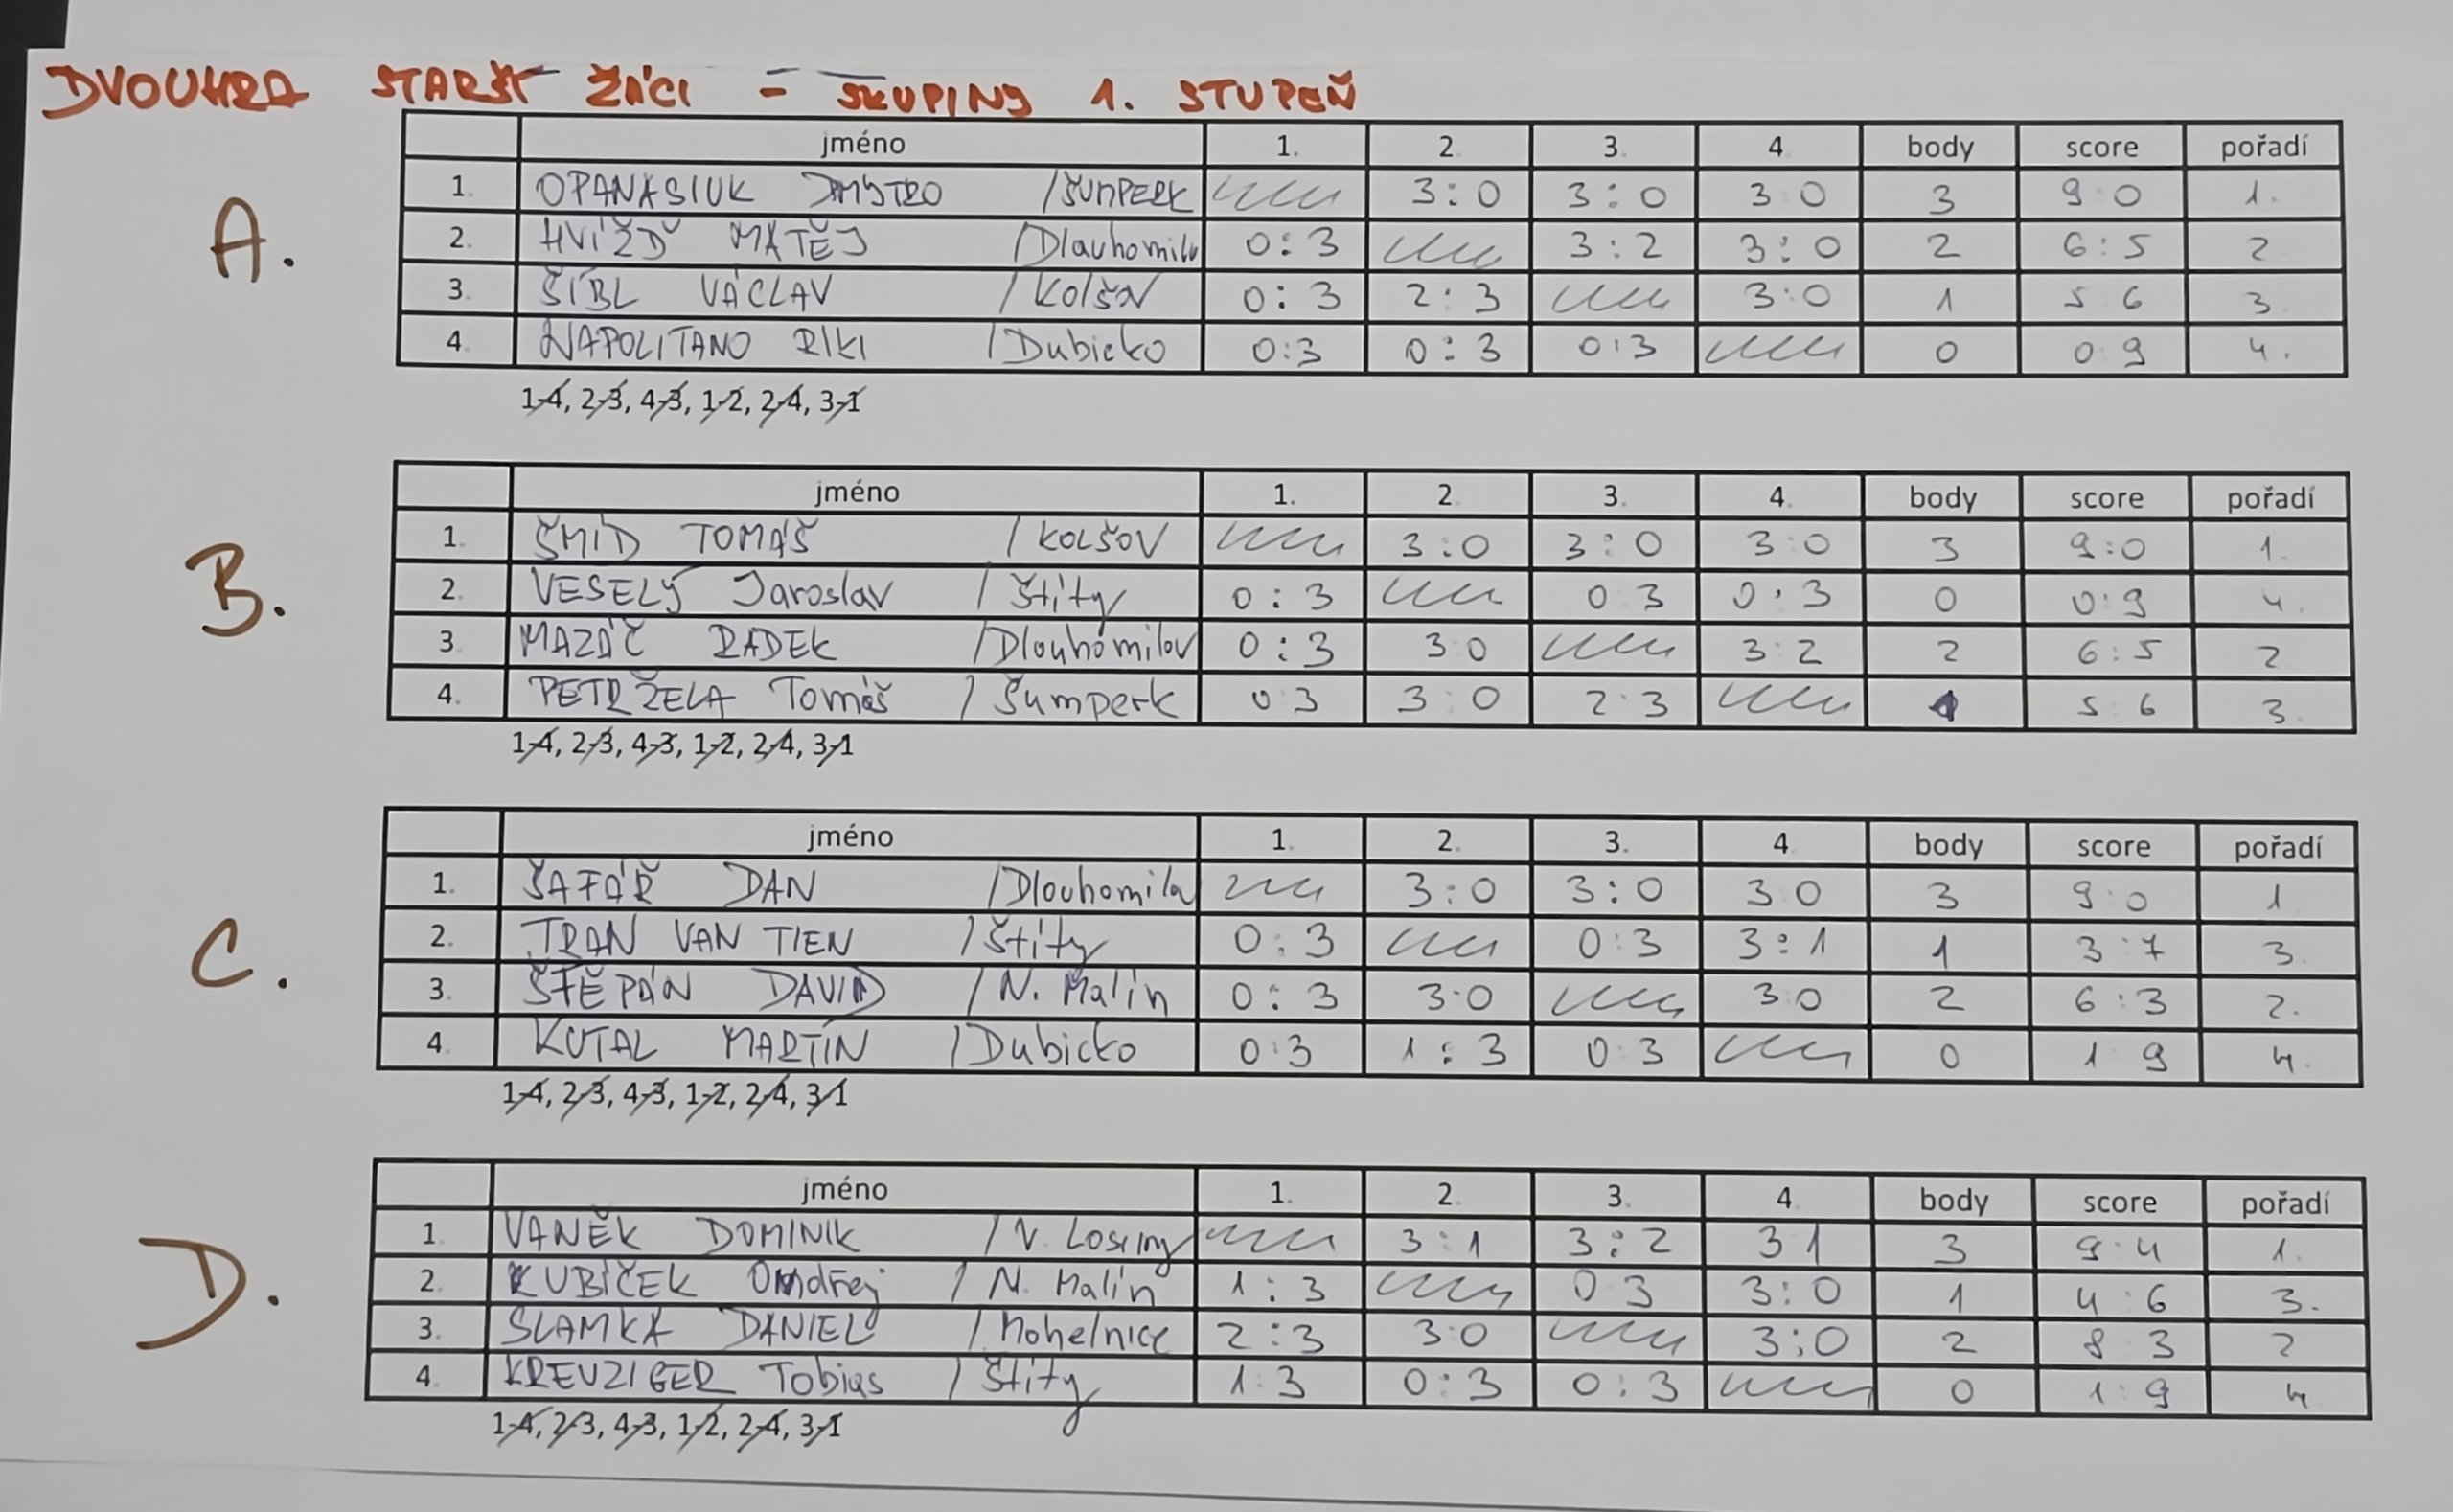 DVOUHRA STARŠÍ ŽÁCI - SKUPINY 1. STUPEŇ
A.
jméno 1. 2. 3. 4. body score pořadí
1. OPANASIUK DMYTRO /ŠUMPERK 3:0 3:0 3:0 3 9:0 1.
2. HVÍŽĎ MATĚJ /Dlouhomilov 0:3 3:2 3:0 2 6:5 2
3. ŠÍBL VÁCLAV /Kolšov 0:3 2:3 3:0 1 5 6 3
4. NAPOLITANO RIKI /Dubicko 0:3 0:3 0:3 0 0 9 4.
1-4, 2-3, 4-3, 1-2, 2-4, 3-1
B.
jméno 1. 2. 3. 4. body score pořadí
1. ŠMÍD TOMÁŠ / KOLŠOV 3:0 3:0 3:0 3 9:0 1.
2. VESELÝ Jaroslav / Štíty 0:3 0 3 0:3 0 0:9 4.
3. MAZÁČ RADEK /Dlouhomilov 0:3 3:0 3:2 2 6:5 2
4. PETRŽELA Tomáš / Šumperk 0 3 3 0 2:3 1 5 6 3.
1-4, 2-3, 4-3, 1-2, 2-4, 3-1
C.
jméno 1. 2. 3. 4. body score pořadí
1. ŠAFÁŘ DAN /Dlouhomilov 3:0 3:0 3 0 3 9:0 1
2. TRAN VAN TIEN / Štíty 0:3 0:3 3:1 1 3:7 3.
3. ŠTĚPÁN DAVID / N. Malín 0:3 3:0 3:0 2 6:3 2.
4. KUTAL MARTIN / Dubicko 0:3 1:3 0:3 0 1 9 4.
1-4, 2-3, 4-3, 1-2, 2-4, 3-1
D.
jméno 1. 2. 3. 4. body score pořadí
1. VANĚK DOMINIK / V. Losiny 3:1 3:2 3 1 3 9:4 1.
2. KUBÍČEK Ondřej / N. Malín 1:3 0 3 3:0 1 4:6 3.
3. SLAMKA DANIEL / Mohelnice 2:3 3:0 3:0 2 8 3 2
4. KREUZIGER Tobias / Štíty 1:3 0:3 0:3 0 1:9 4
1-4, 2-3, 4-3, 1-2, 2-4, 3-1